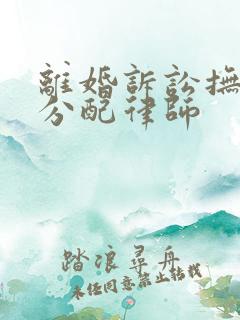 離婚訴訟撫
分配律師
踏浪尋舟
未經同意禁止轉載